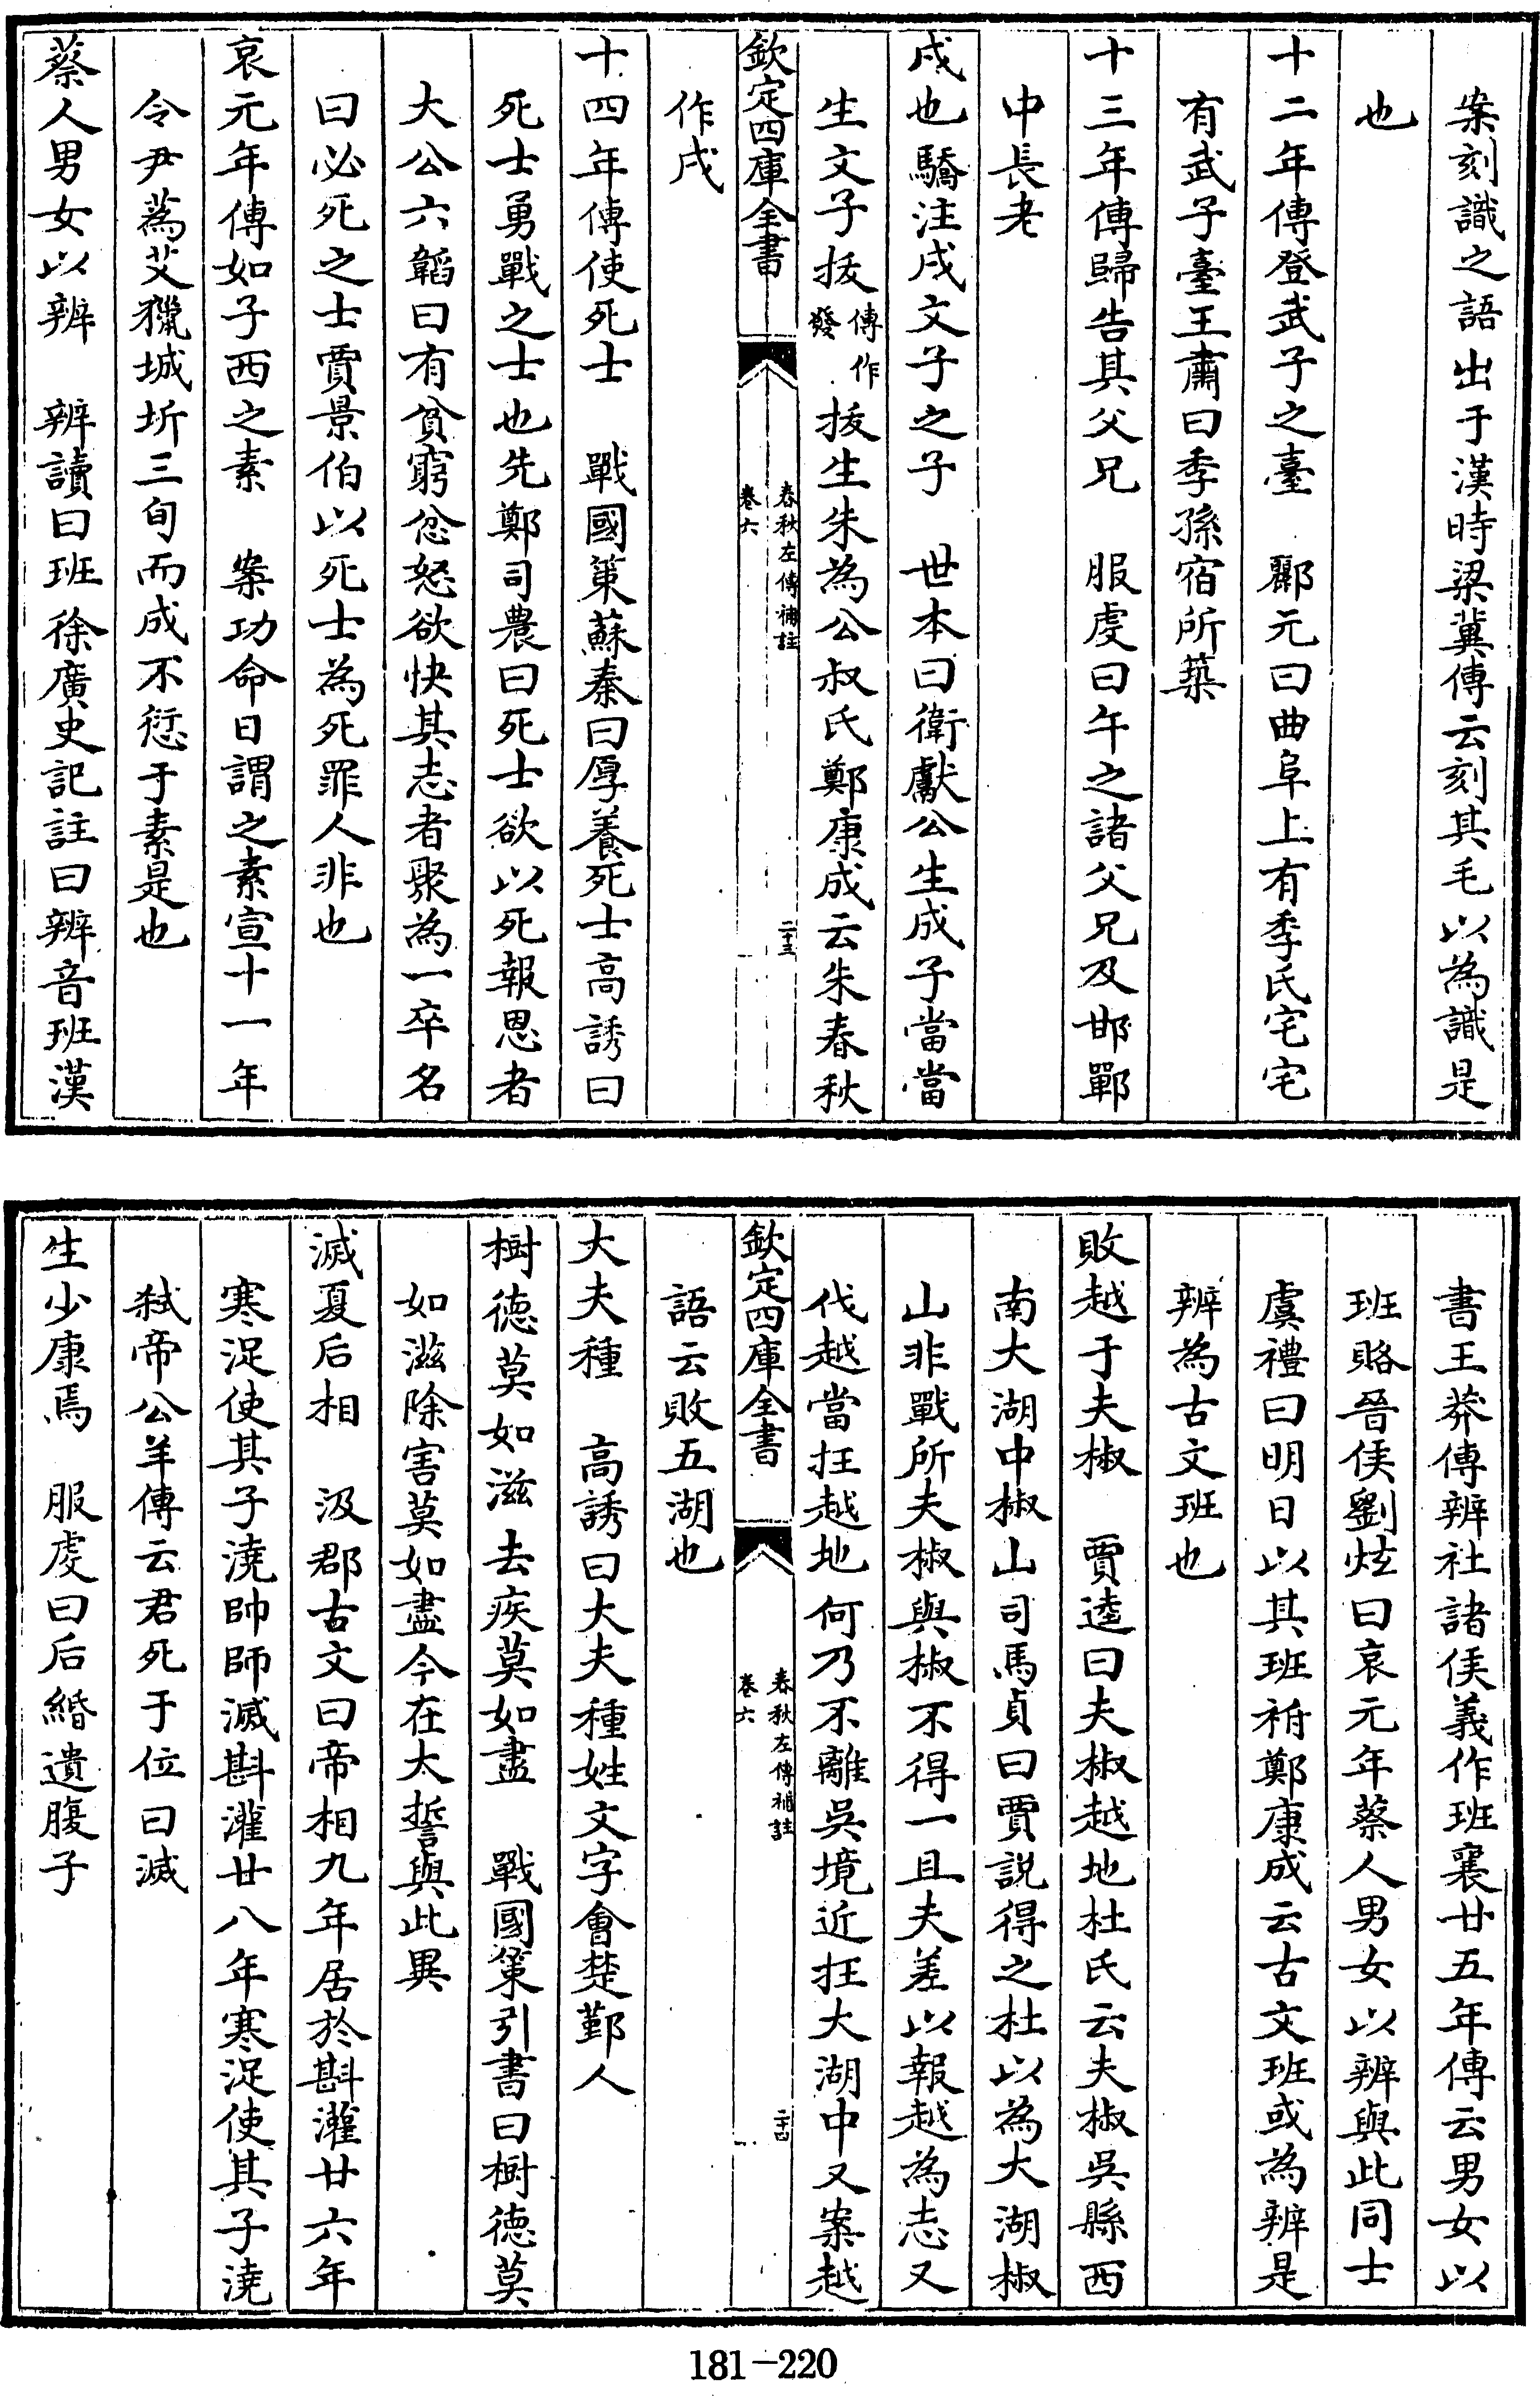 案刻識之語出于漢時梁冀傳云刻其毛以為識是
也
十二年傳登武子之臺　酈元曰曲阜上有季氏宅宅
有武子臺王肅曰季孫宿所築
十三年傳歸告其父兄　服虔曰午之諸父兄及邯鄲
中長老
戍也驕注戍文子之子　世本曰衛獻公生成子當當
生文子拔傳作發　拔生朱為公叔氏鄭康成云朱春秋
欽定四庫全書
春秋左傳補註
卷六
二十三
作戍
十四年傳使死士　戰國策蘇秦曰厚養死士高誘曰
死士勇戰之士也先鄭司農曰死士欲以死報恩者
大公六韜曰有貧窮忿怒欲快其志者聚為一卒名
曰必死之士賈景伯以死士為死罪人非也
哀元年傳如子西之素　案功命日謂之素宣十一年
令尹蒍艾獵城圻三旬而成不愆于素是也
蔡人男女以辨　辨讀曰班徐廣史記註曰辨音班漢
書王莽傳辨社諸侯義作班襄廿五年傳云男女以
班賂晉侯劉炫曰哀元年蔡人男女以辨與此同士
虞禮曰明日以其班祔鄭康成云古文班或為辨是
辨為古文班也
敗越于夫椒　賈逵曰夫椒越地杜氏云夫椒吳縣西
南大湖中椒山司馬貞曰賈説得之杜以為大湖椒
山非戰所夫椒與椒不得一且夫差以報越為志又
伐越當在越地何乃不離吳境近在大湖中又案越
欽定四庫全書
春秋左傳補註
卷六
二十四
語云敗五湖也
大夫種　高誘曰大夫種姓文字會楚鄞人
樹德莫如滋去疾莫如盡　戰國策引書曰樹德莫
如滋除害莫如盡今在太誓與此異
滅夏后相　汲郡古文曰帝相九年居於斟灌廿六年
寒浞使其子澆帥師滅斟灌廿八年寒浞使其子澆
弒帝公羊傳云君死于位曰滅
生少康焉　服虔曰后緡遺腹子
181-220